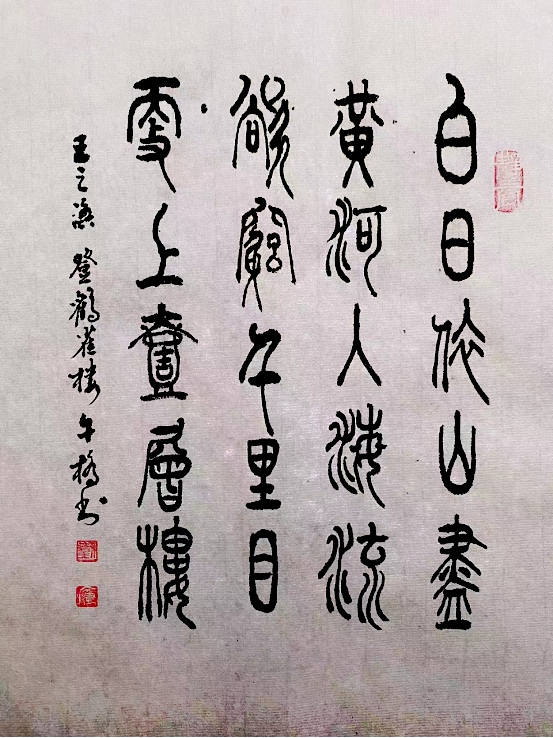 白日依山盡
黃河入海流
欲窮千里目
更上壹層樓
王之渙 登鸛雀樓 午橋书